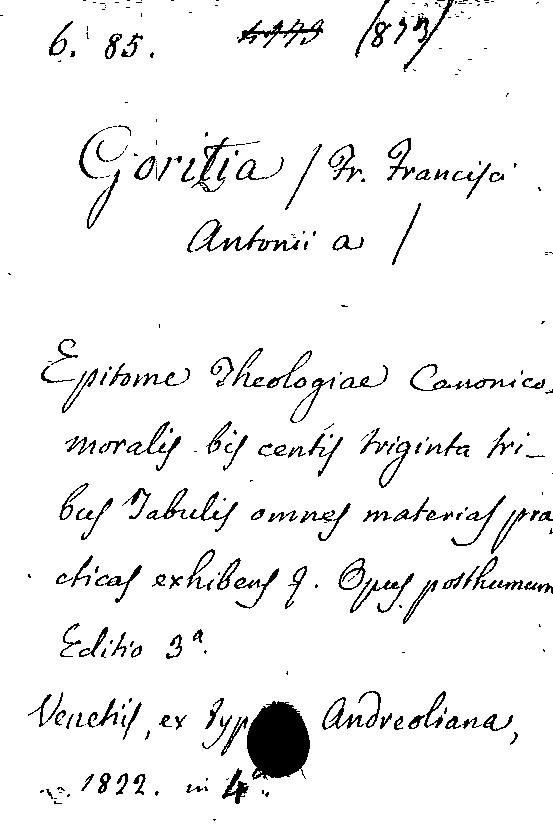 6. 85. 1773 /873/
Goritia / Fr. Francisci
Antonii a /
Epitome Theologiae Canonico-
moralis bis centis triginta tri-
bus Tabulis omnes materias pra-
cticas exhibens &. Opus posthumum
Editio 3ª.
Venetiis, ex Typ Andreoliana,
1822. in 4º.